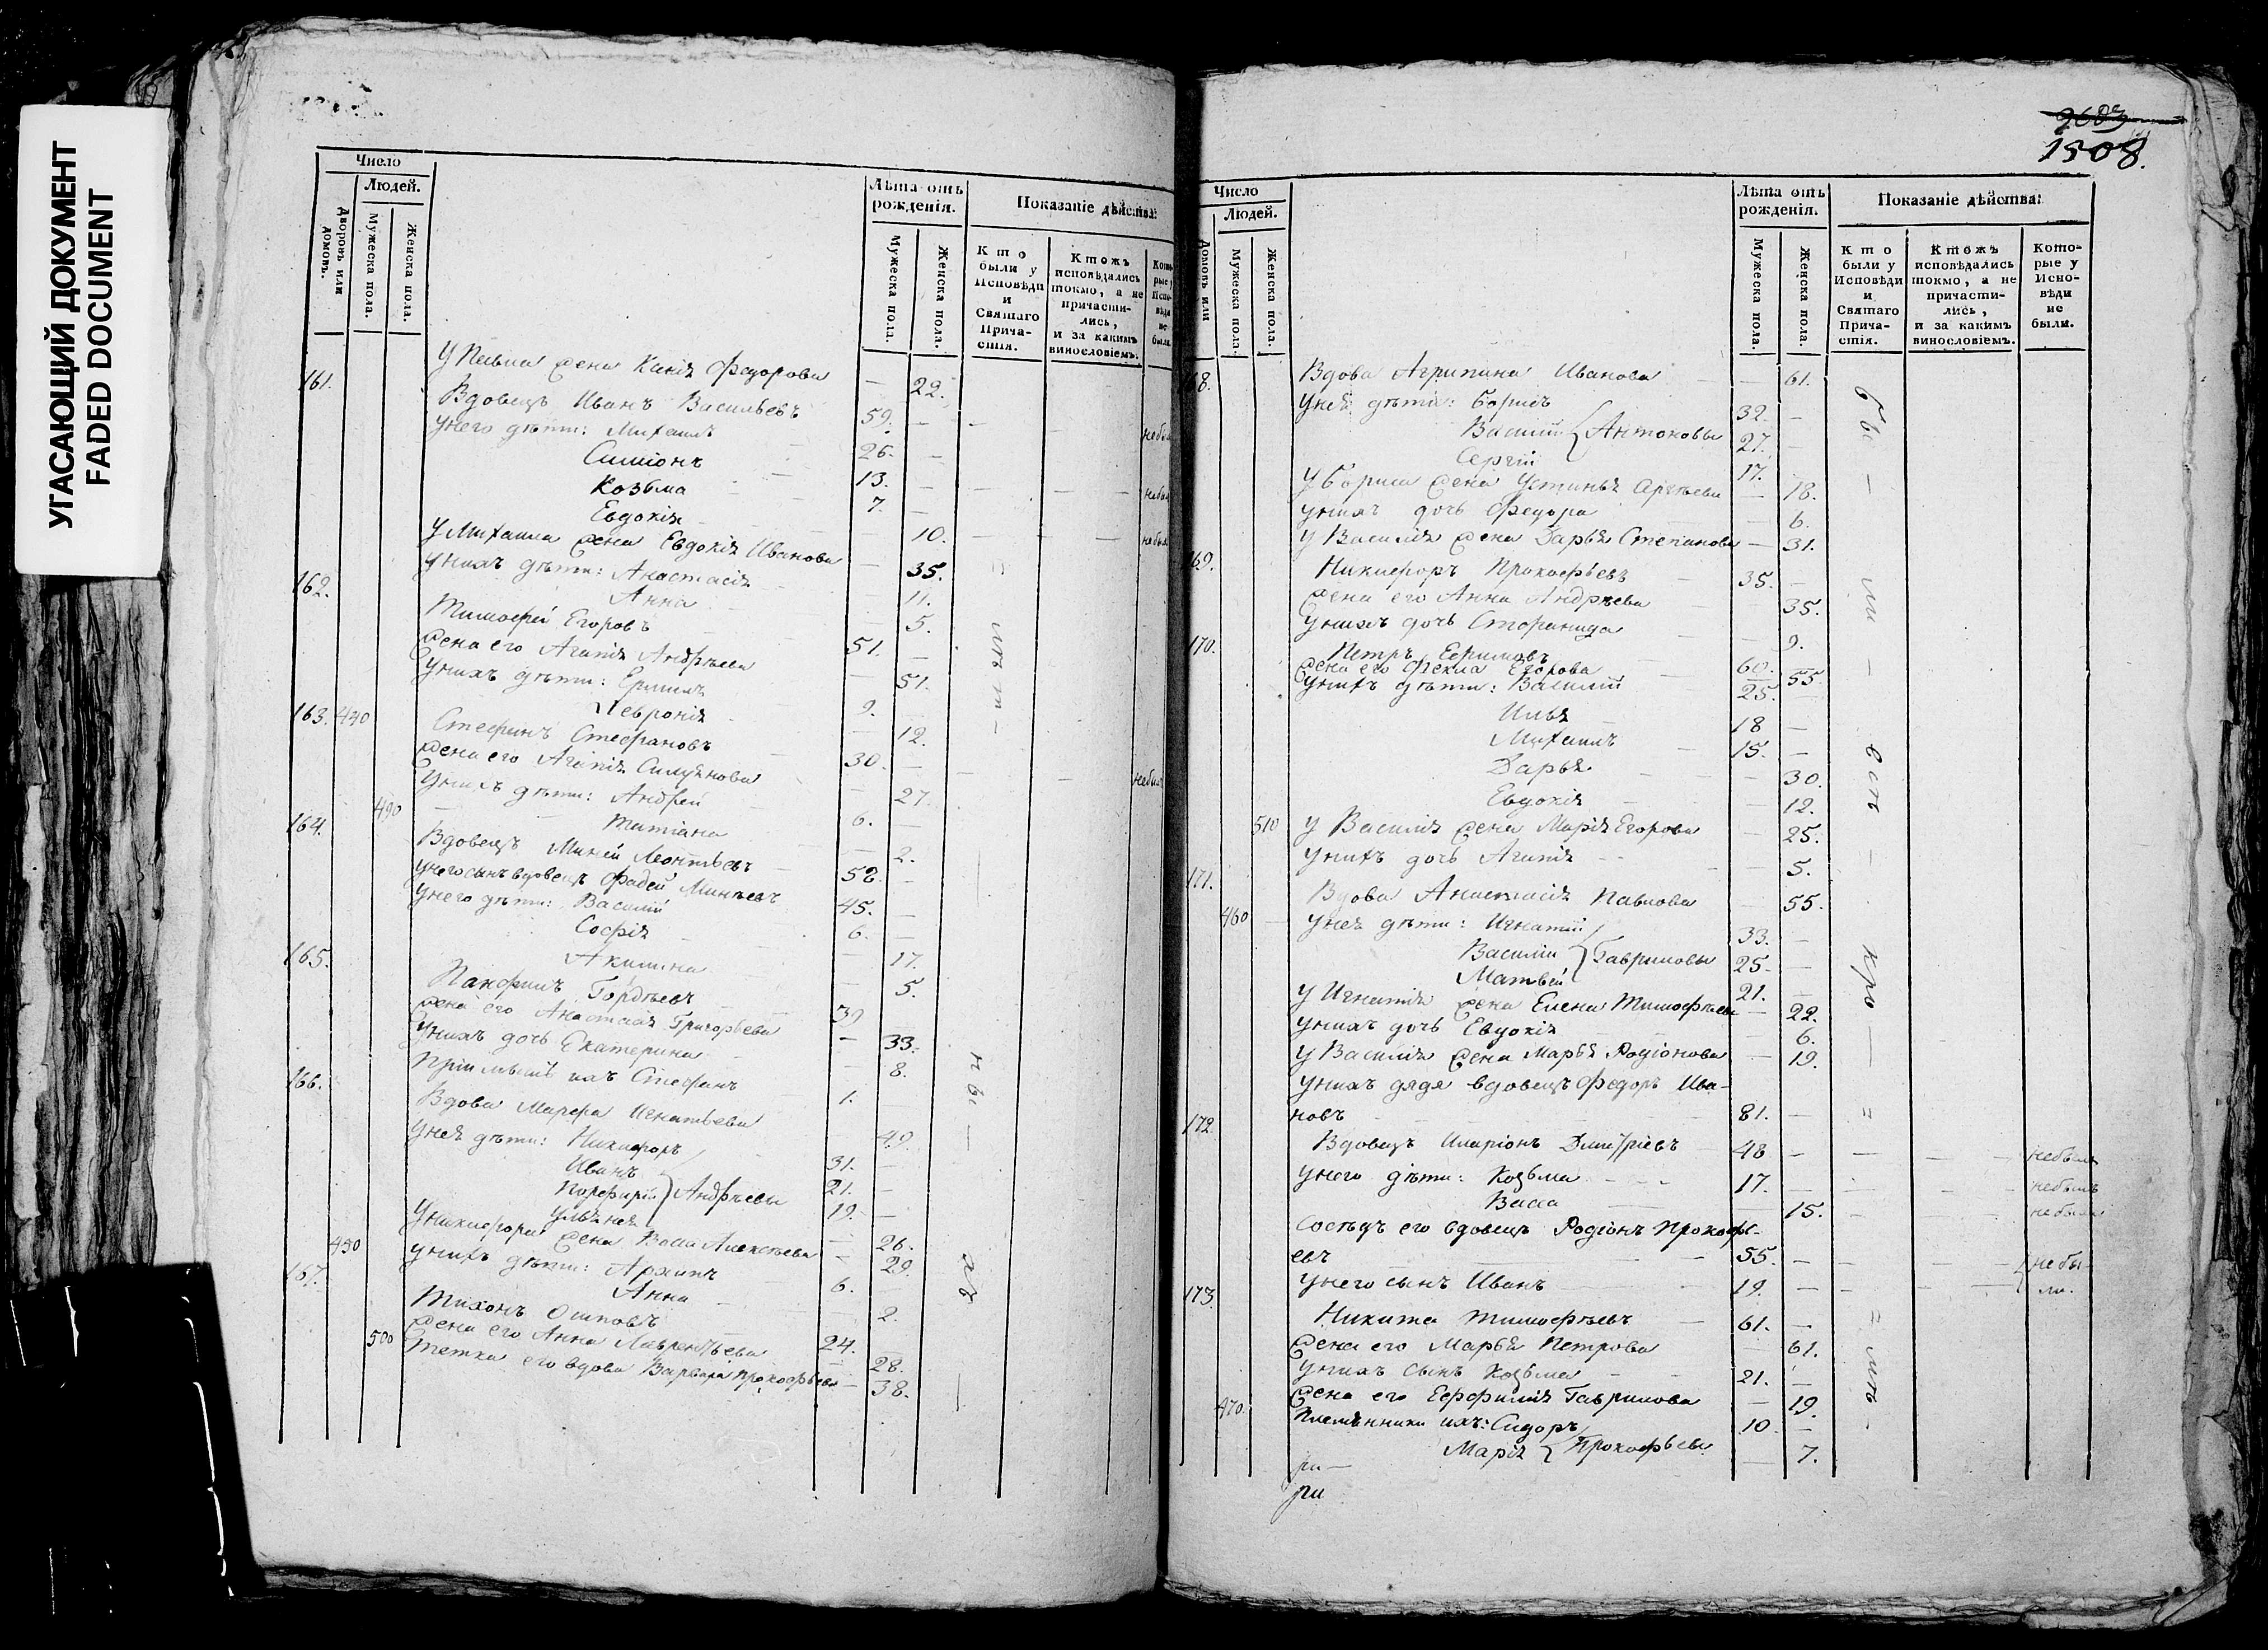 УГАСАЮЩИЙ ДОКУМЕНТ
FADED DOCUMENT
Число
Людей.
Дворовъ или домовъ.
Мужеска пола.
Женска пола.
Лѣта отъ рожденія.
Мужеска пола.
Женска пола.
Показаніе дѣйства:
Кто были у Исповѣди и Святаго Причастія.
Ктожъ исповѣдались токмо, а не причастились, и за какимъ винословіемъ.
У Павла жена Ксенія Федорова — 22.
161. Вдовецъ Иванъ Васильевъ 59.
Унего дѣти: Михаилъ 26.
Симіонъ 13.
Козьма 7.
Евдокія 10.
У Михаила жена Евдокія Иванова 35.
Унихъ дѣти: Анастасія 11.
Анна 5.
162. Тимофей Егоровъ 51.
Жена его Агапія Андрѣева 51.
Унихъ дѣти: 9.
Февронія 12.
163. 440 Стефанъ Стефановъ 30.
Жена его Агапія Силуянова 27.
Унихъ дѣти: Андрей 6.
490 Татіана 2.
164. Вдовецъ Миней Леонтьевъ 58.
Унего сынъ вдовецъ Фадей Минѣевъ 45.
Унего дѣти: Василій 6.
Софія 17.
Акилина 5.
165. Панфилъ Гордѣевъ 39
Жена его Анастасія Григорьева — 33.
Унихъ дочь Екатерина 8.
Стефанъ 1.
166. Вдова Марфа Игнатьева 49.
Унея дѣти: Никифоръ 31.
Иванъ 21.
Порфирій } Андрѣевы 19.
Ульянея 26.
Уникифора жена Васса Алексѣева 29.
450 Унихъ дѣти: Архипъ 6.
Анна 2.
167. Тихонъ Осиповъ 24.
Жена его Анна Лаврентьева 28.
500 Тетка его вдова Варвара Прокофьева — 38.
2683
1508.
Число
Людей.
Домовъ или
Мужеска пола.
Женска пола.
Лѣта отъ рожденія.
Мужеска пола.
Женска пола.
Показаніе дѣйства:
Кто были у Исповѣди и Святаго Причастія.
Ктожъ исповѣдались токмо, а не причастились, и за какимъ винословіемъ.
Которые у Исповѣди не были.
68. Вдова Агрипина Иванова 61.
Унея дѣти: Борисъ 32.
Василій { Антоновы 27.
Сергій 17.
У Бориса жена Устинья — 18.
Унихъ дочь Федора 6.
У Василія жена Дарья Степанова — 31.
69. Никифоръ Прокофьевъ 35.
Жена его Анна Андрѣева 35.
Унихъ дочь Стефанида 9.
170. Петръ Ефимовъ 60.
Жена его Фекла Егорова 55
Унихъ дѣти: Василій 25.
Илья 18
Михаилъ 15.
Дарья 30.
Евдокія 12.
510 У Василія жена Марія Егорова 25.
Унихъ дочь Агапія 5.
171. Вдова Анастасія Павлова 55.
460 Унея дѣти: Игнатій 33.
Василій } Гавриловы 25.
Матвѣй 21.
У Игнатія жена Елена Тимофѣева — 22.
Унихъ дочь Евдокія 6.
У Василія жена Марья Родіонова — 19.
Унихъ дядя вдовецъ Федоръ Ива-
новъ 81.
172. Вдовецъ Иларіонъ Дмитріевъ 48 небылъ
Унего дѣти: Козьма 17. небылъ
Васса 15. небыла
Сосѣдъ его вдовецъ Родіонъ Прокофь-
евъ 55. небы-
Унего сынъ Иванъ 19. ли.
173. Никита Тимофѣевъ 61.
Жена его Марья Петрова 61.
Унихъ сынъ Козьма 21.
470. Жена его Евфимія Гаврилова — 19.
Племянники ихъ: Сидоръ 10
Марія { Прокофьевы 7.